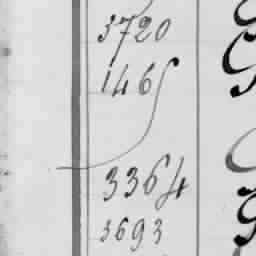 3720
146
3364
3693